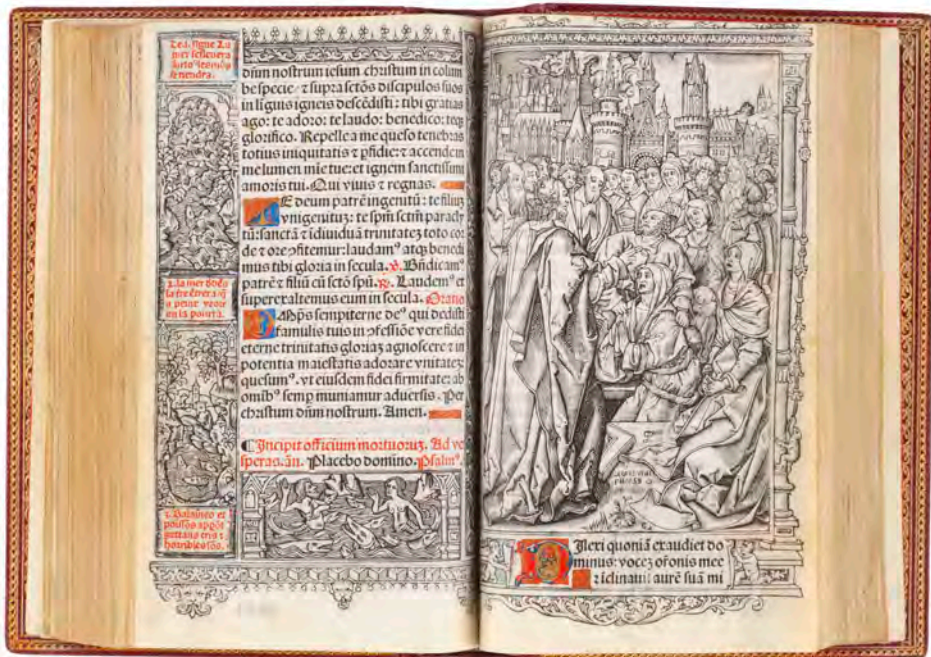 dñm nostrum iesum christum in colum
be specie: ⁊ supra sctõs discipulos suos
in liguis igneis descẽdisti: tibi gratias
ago: te adoro: te laudo: benedico: teqꝫ
glorifico. Repelle a me queso tenebras
totius iniquitatis ⁊ ꝑfidie: ⁊ accende in
me lumen mie tue: et ignem sanctissimi
amoris tui. Qui viuis ⁊ regnas.
TE deum patrẽ ingenitũ: te filiuꝫ
vnigenituꝫ: te spm̃ sctm̃ paracly
tũ: sanctã ⁊ idiuiduã trinitateꝫ toto cor
de ⁊ ore ꝯfitemur: laudamꝰ atqꝫ benedi
mus tibi gloria in secula. ℣. Bñdicamꝰ
patrẽ ⁊ filiũ cũ sctõ spũ. ℟. Laudemꝰ et
superexaltemus eum in secula. Oratio
OMps̃ sempiterne deꝰ qui dedisti
famulis tuis in ꝯfessiõe vere fidei
eterne trinitatis gloriaꝫ agnoscere ⁊ in
potentia maiestatis adorare vnitateꝫ
quesumꝰ. vt eiusdem fidei firmitate: ab
omnibꝰ semp muniamur aduersis. Per
christum dñm nostrum. Amen.
Incipit officium mortuoruꝫ. Ad ve
speras. añ. Placebo domino. Psalmꝰ.
Dea. signe La
mer
⁊ la mer
la tre
a peine veoir
en la pointe.
⁊ Balaines et
poissõs
gettans cris ⁊
horribles sõs.
Dilexi quoniã exaudiet do
minus: voceꝫ orõnis mee
⁊ iclinauit aurẽ suã mi